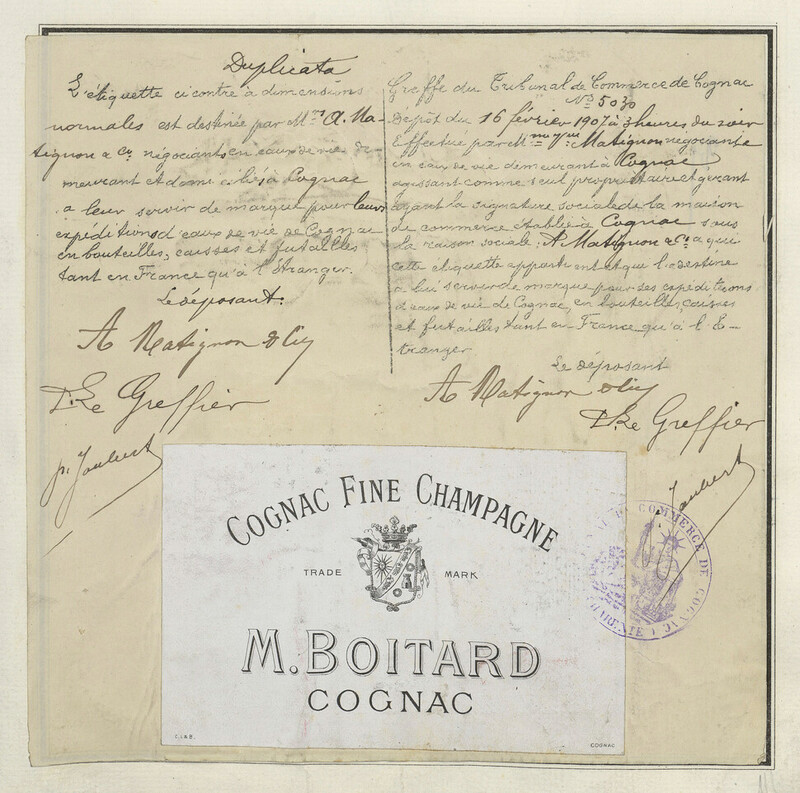 Duplicata
L'étiquette ci contre à dimensions
normales est destinée par Mrs A. Ma-
tignon & Co négociants en eaux de vie de-
meurant et domiciliés à Cognac
a leur servir de marque pour leurs
expéditions d'eaux de vie de Cognac
en bouteilles, caisses et futailles
tant en France qu'à l'Etranger.
Le déposant.
A Matignon & Cie
Le Greffier
Joubert
Greffe du Tribunal de Commerce de Cognac
No 5030
Dépôt du 16 février 1907 à 3 heures du soir
Effectué par Matignon négociant
en eaux de vie demeurant à Cognac
agissant comme seul propriétaire et gérant
ayant la signature sociale de la maison
de commerce établie à Cognac sous
la raison sociale: A Matignon & Co a qui
cette étiquette appartient et qui l'a destine
a lui servir de marque pour ses expéditions
d'eaux de vie de Cognac, en bouteilles, caisses
et futailles tant en France qu'à l'E-
tranger
Le déposant
A Matignon & Cie
Le Greffier
Joubert
COGNAC FINE CHAMPAGNE
TRADE MARK
M. BOITARD
COGNAC
C.J&B.
COGNAC
COMMERCE DE COGNAC
CHARENTE